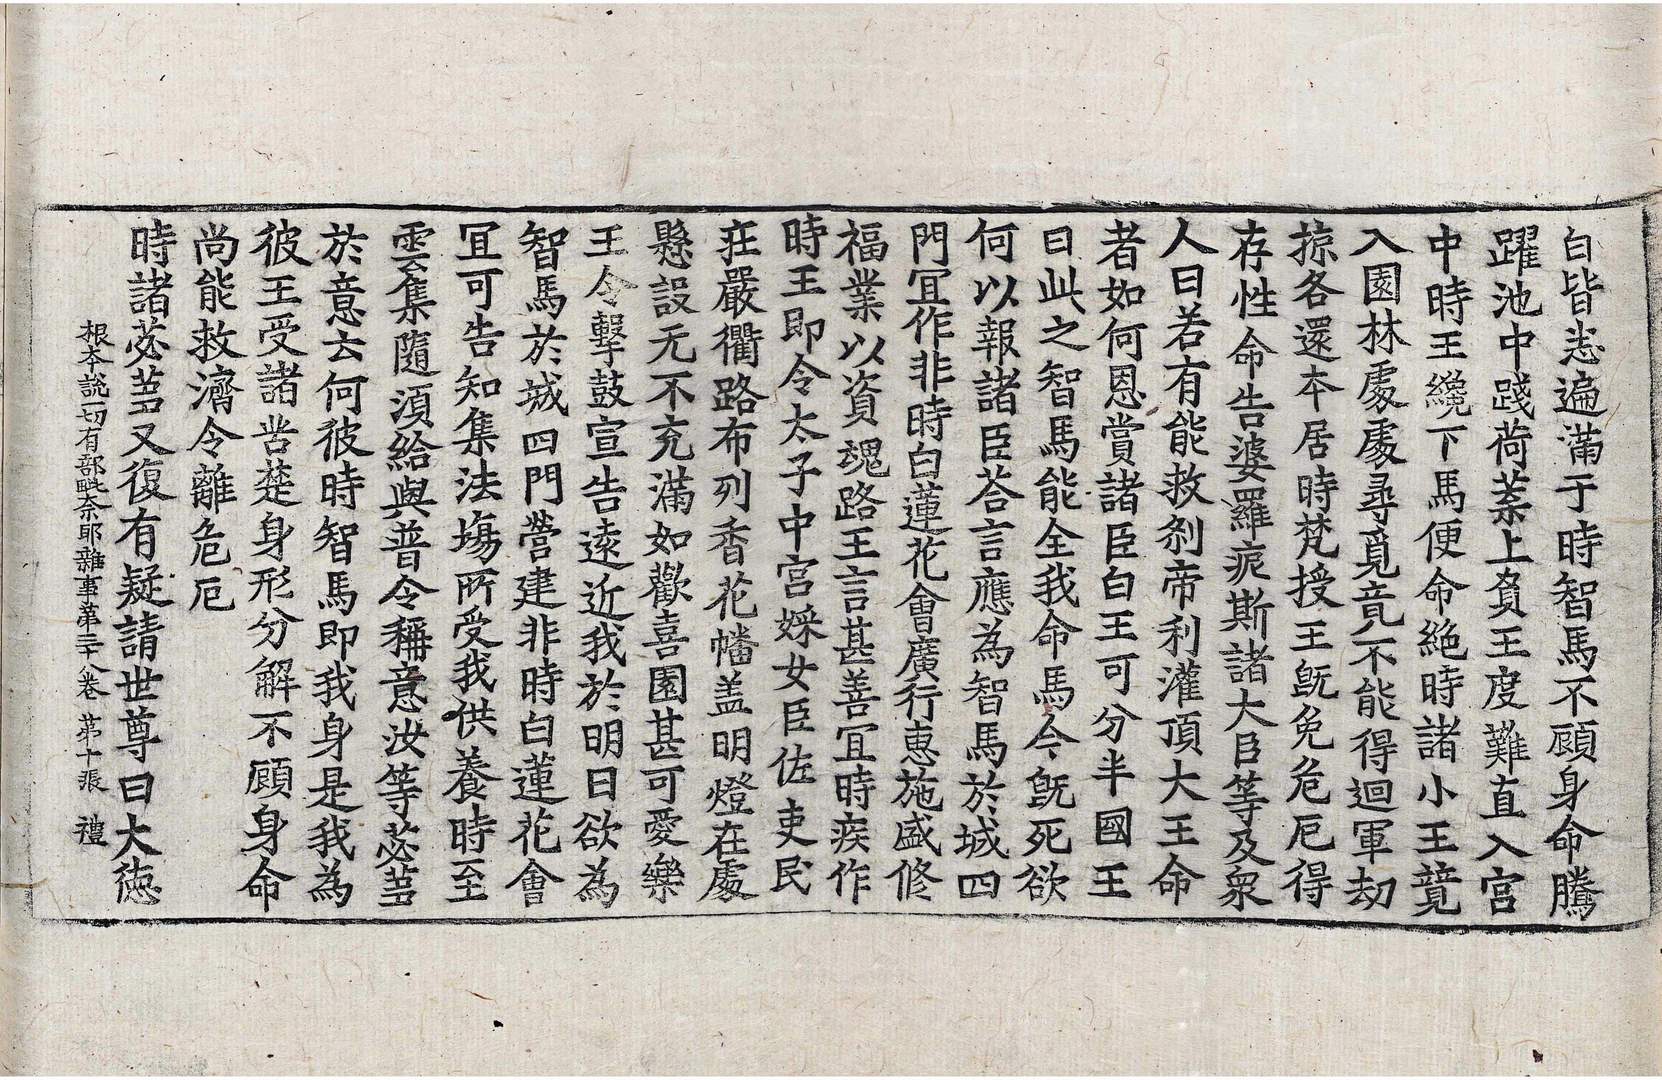 白皆悉遍滿于時智馬不顧身命騰
躍池中踐荷葉上負王度難直入宮
中時王纔下馬便命絶時諸小王竟
入園林處處尋覓竟不能得迴軍劫
掠各還本居時梵授王旣免危厄得
存性命告婆羅痆斯諸大臣等及衆
人曰若有能救刹帝利灌頂大王命
者如何恩賞諸臣白王可分半國王
曰此之智馬能全我命馬今旣死欲
何以報諸臣荅言應為智馬於城四
門冝作非時白蓮花會廣行惠施盛修
福業以資魂路王言甚善冝時疾作
時王即令太子中宮婇女臣佐吏民
莊嚴衢路布列香花幡盖明燈在處
懸設无不充滿如歡喜園甚可愛樂
王令擊鼓宣告逺近我於明日欲為
智馬於城四門營建非時白蓮花會
冝可告知集法塲所受我供養時至
雲集隨湏給與普令稱意汝等苾芻
於意云何彼時智馬即我身是我為
彼王受諸苦楚身形分解不顧身命
尚能救濟令離危厄
時諸苾芻又復有疑請世尊曰大徳
根本說一切有部毗奈耶雜事第三十八卷 第十張 禮